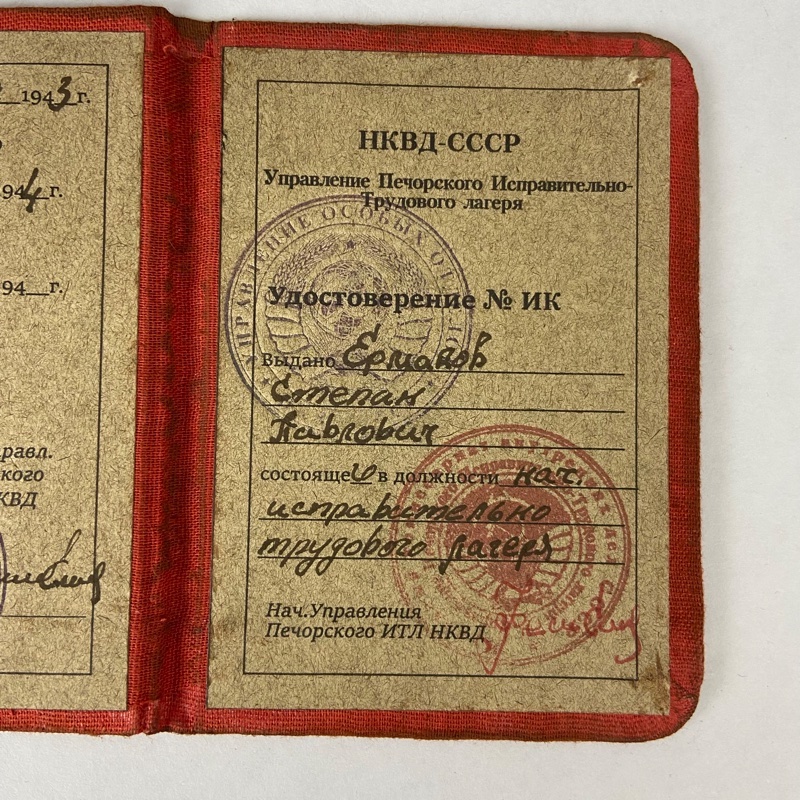 1943 г.
1944 г.
194 г.
равл.
кого
КВД
НКВД-СССР
Управление Печорского Исправительно-
Трудового лагеря
УПРАВЛЕНИЕ ОСОБЫХ
Удостоверение № ИК
Выдано Ермаков
Степан
Павлович
состоящей в должности нач.
исправительно
трудового лагеря
Нач.Управления
Печорского ИТЛ НКВД